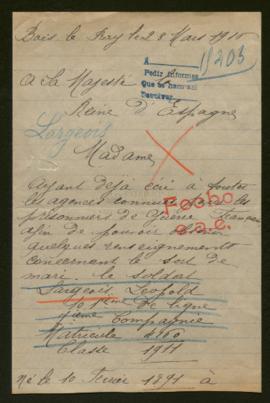 Bois le Roy le 28 Mars 1916
11203
A
Pedir informes
Que se han
Devolver
A Sa Majesté la
Reine d'Espagne
Largeois
Madame
Ayant déjà écrit à toutes
les agences connues les
prisonniers de Guerre Français
afin de pouvoir obtenir
quelques renseignements
concernant le sort de
mari. le soldat
Largeois Léopold
Ligne
Compagnie
Matricule 4160
Classe 1911
Né le 10 Février 1891 à
Fecho